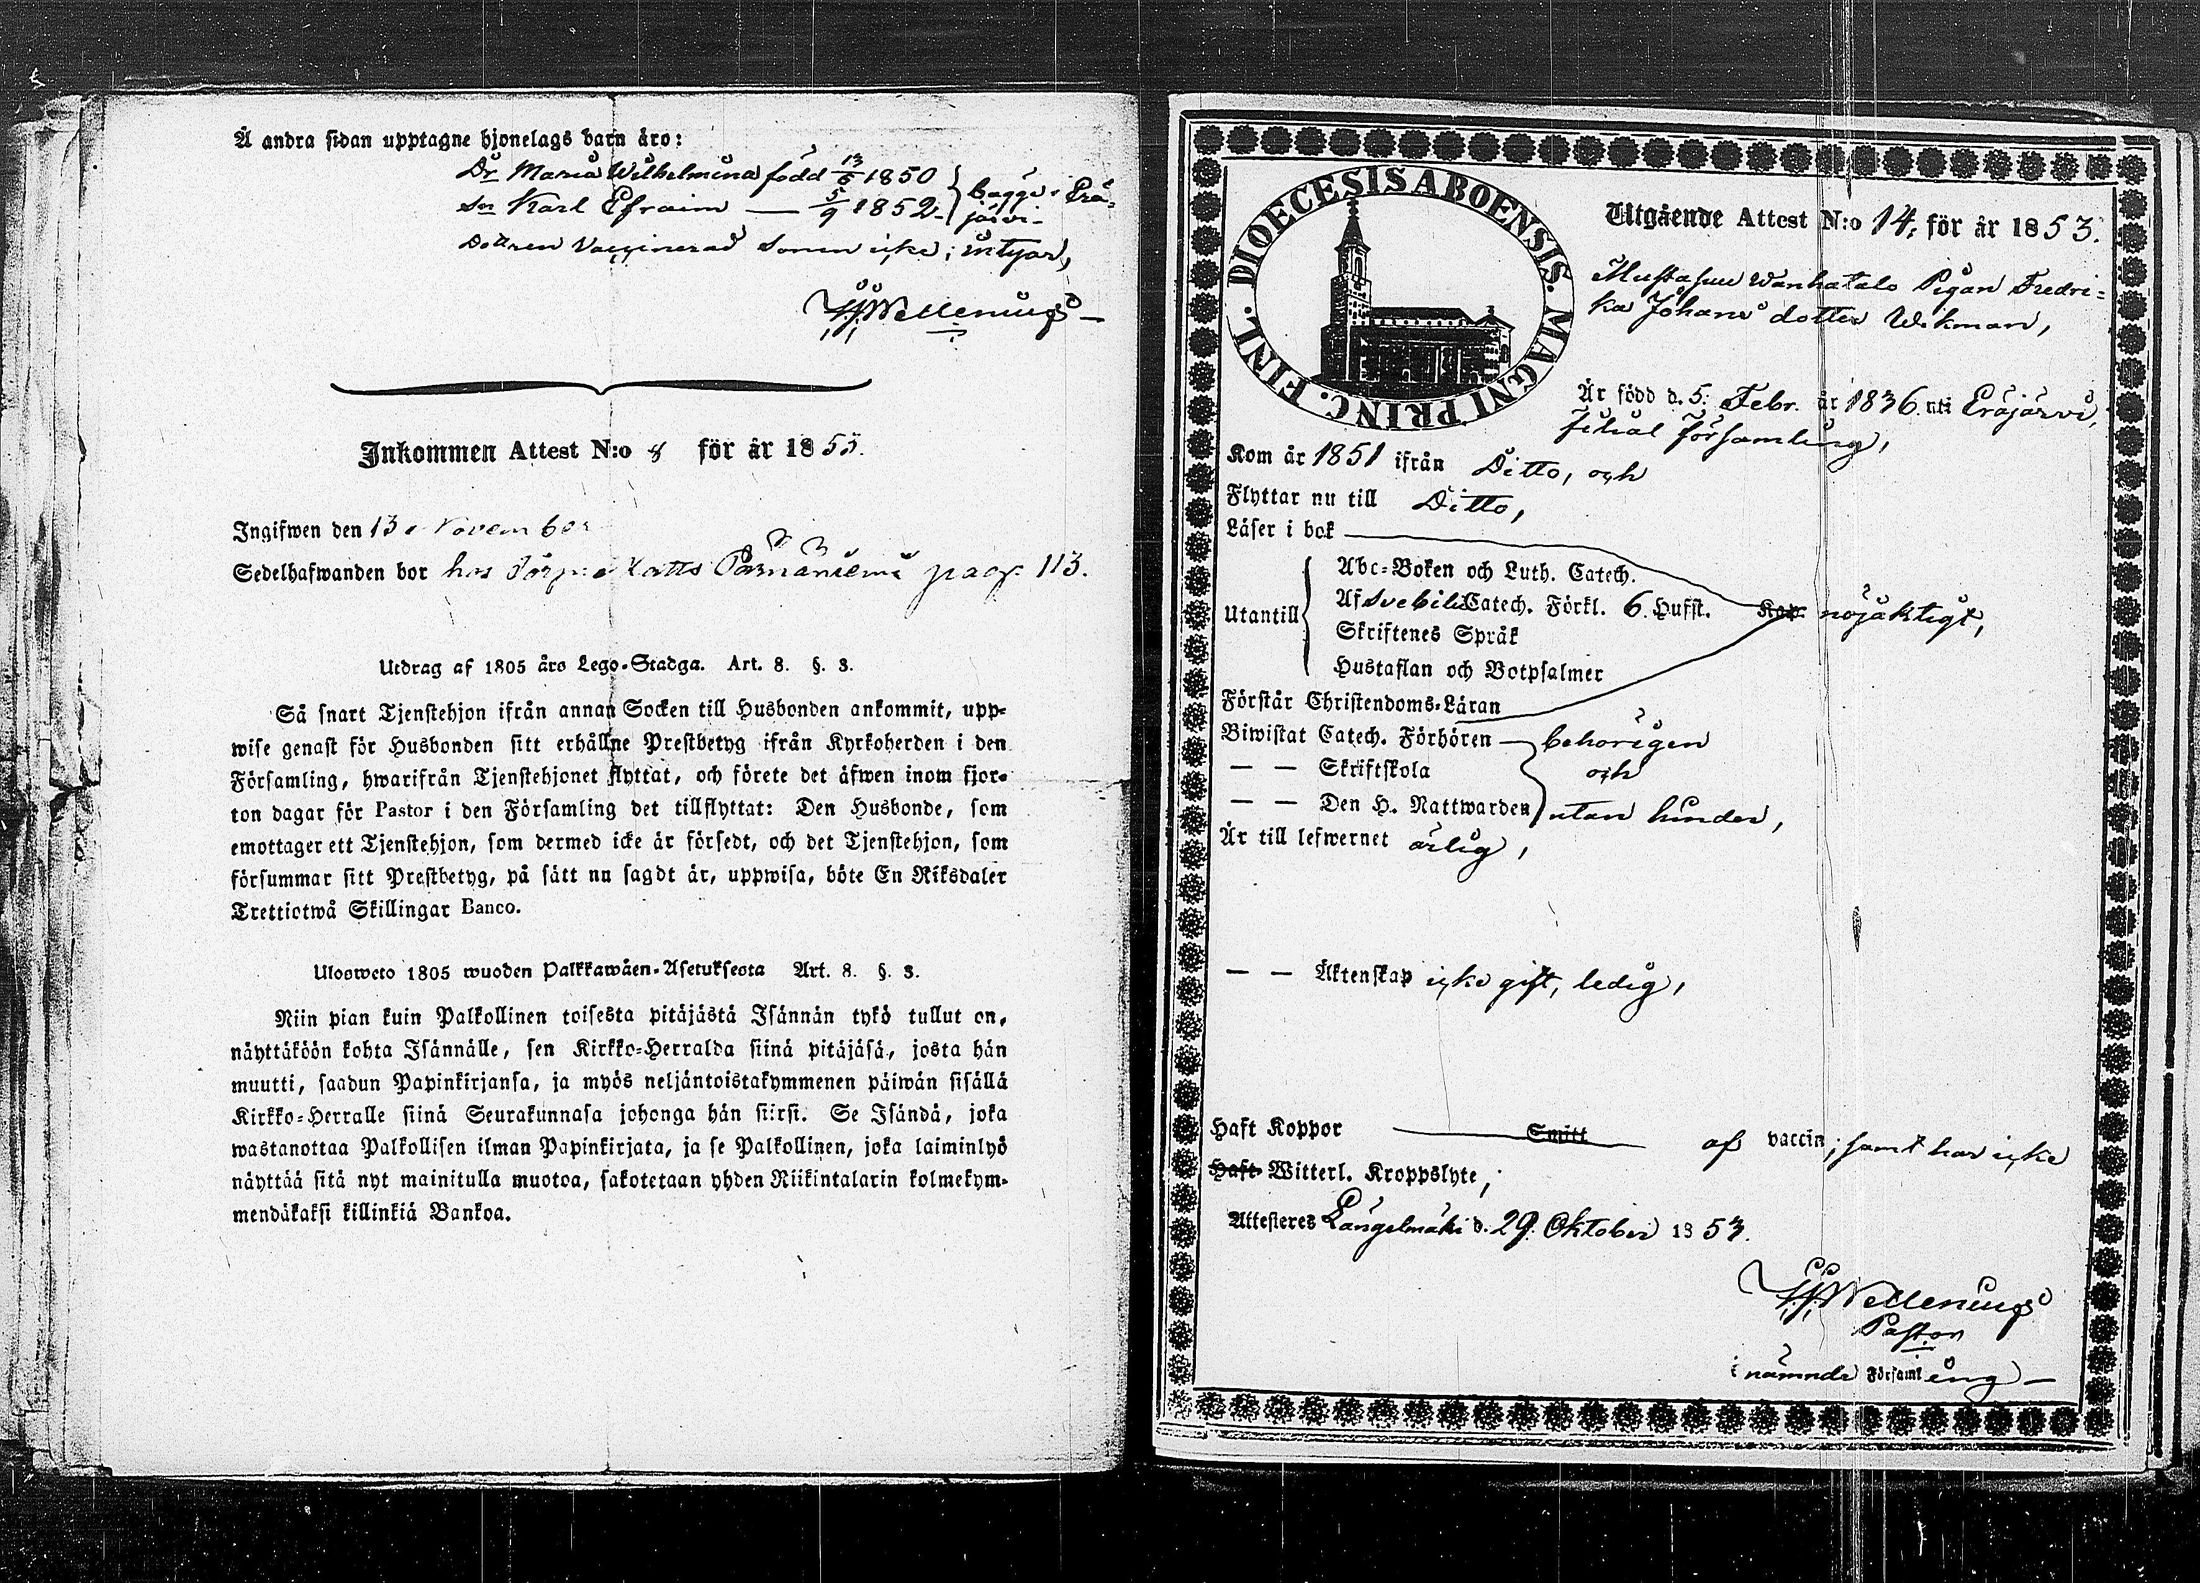 Å andra sidan upptagne hjonelags barn äro:
Dr Maria Wilhelmina född 13/6 1850
Sn Karl Efraim — 5/9 1852
bägge i Erä-
järvi
Dottren vaccinerad Sonen icke; intygar,
Inkommen Attest N:o 8 för år 1853.
Ingifwen den 13 November
Sedelhafwanden bor hos Torp: Matts Pärnäniemi pag. 113.
Utdrag af 1805 års Lego-Stadga. Art. 8. §. 3.
Så snart Tjenstehjon ifrån annan Socken till Husbonden ankommit, upp-
wise genast för Husbonden sitt erhållne Prestbetyg ifrån Kyrkoherden i den
Församling, hwarifrån Tjenstehjonet flyttat, och förete det äfwen inom fjor-
ton dagar för Pastor i den Församling det tillflyttat: Den Husbonde, som
emottager ett Tjenstehjon, som dermed icke är försedt, och det Tjenstehjon, som
försummar sitt Prestbetyg, på sätt nu sagdt är, uppwisa, böte En Riksdaler
Trettiotwå Skillingar Banco.
Ulosweto 1805 wuoden Palkkawäen-Asetuksesta Art. 8. §. 3.
Niin pian kuin Palkollinen toisesta pitäjästä Isännän tykö tullut on,
näyttäköön kohta Isännälle, sen Kirkko-Herralda siinä pitäjäsä, josta hän
muutti, saadun Papinkirjansa, ja myös neljäntoistakymmenen päiwän sisällä
Kirkko-Herralle siinä Seurakunnasa johonga hän siirsi. Se Isändä, joka
wastanottaa Palkollisen ilman Papinkirjata, ja se Palkollinen, joka laiminlyö
näyttää sitä nyt mainitulla muotoa, sakotetaan yhden Riikintalarin kolmekym-
mendäkaksi killinkiä Bankoa.
DIOECESIS ABOENSIS. MAGNI PRINC. FINL.
Utgående Attest N:o 14, för år 1853.
Mustasuu Wanhatalo Pigan Fredri-
ka Johans dotter Wikman,
Är född d. 5. Febr. år 1836 uti Eräjärvi
filial församling,
Kom år 1851 ifrån Ditto, och
Flyttar nu till Ditto,
Läser i bok
Utantill
Abc-Boken och Luth. Catech.
Af Svebilii Catech. Förkl. 6. Hufst. Kap. nöjaktigt,
Skriftenes Språk
Hustaflan och Botpsalmer
Förstår Christendoms-Läran
Biwistat Catech. Förhören — behörigen
— — Skriftskola och
— — Den H. Nattwarden utan hinder,
Är till lefwernet ärlig,
— — Äktenskap icke gift, ledig,
Haft Koppor Smitt af vaccin; samt har icke
Haft Witterl. Kroppslyte;
Attesteres Längelmäki d. 29. Oktober 1853.
Pastor
i nämnde Församling —